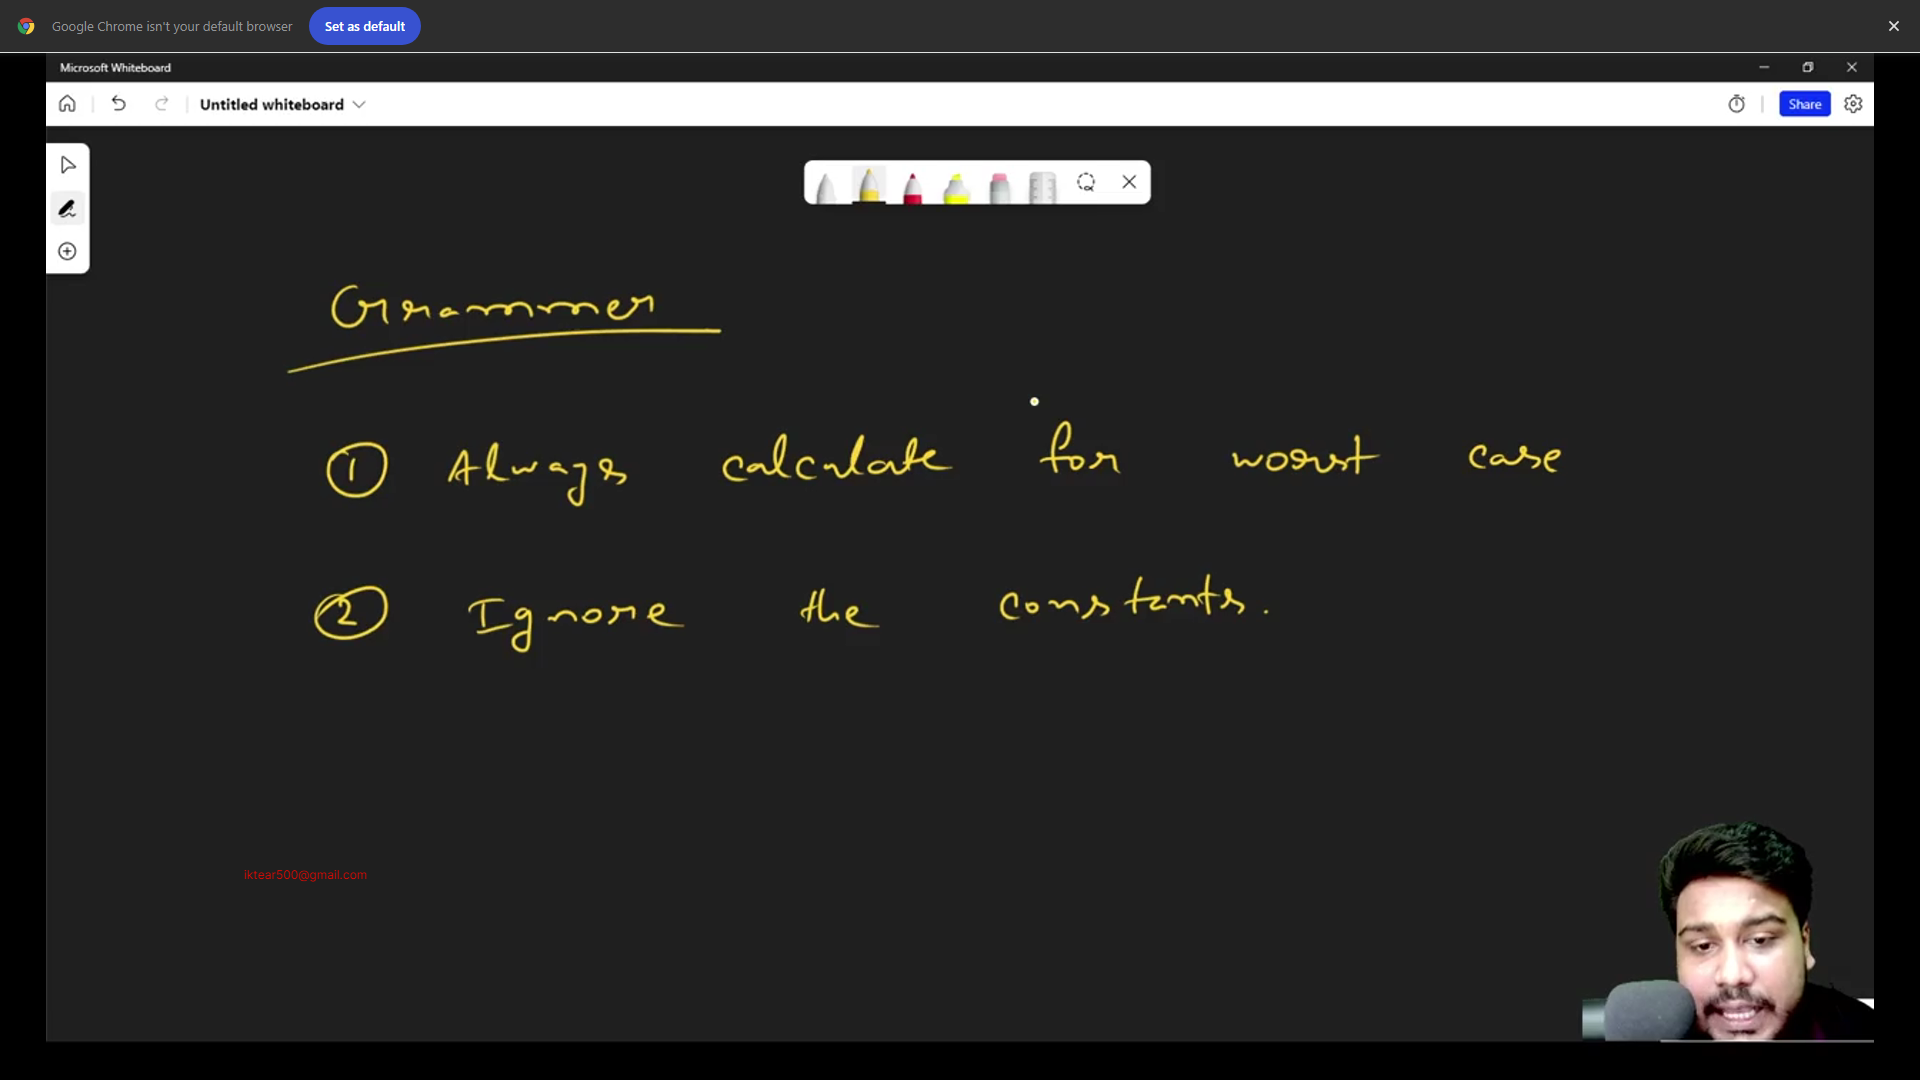 Google Chrome isn't your default browser Set as default
Microsoft Whiteboard
Untitled whiteboard Share
Grammer
1 Always calculate for worst case
2 Ignore the constants.
iktear500@gmail.com